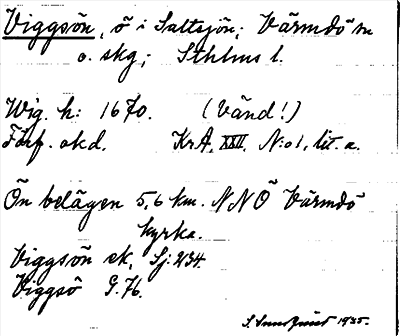 Viggsön, ö i Saltsjön; Värmdö sn
o. skg; Sthlms l.
Wig. h: 1670. (Vänd!)
Förf. okd. KrA, XXII, N:o 1, lit. a.
Ön belägen 5,6 km. NNÖ Värmdö
kyrka.
Viggsön ek. Sj: 234.
Viggsö G. 76.
S. Sundquist 1935.